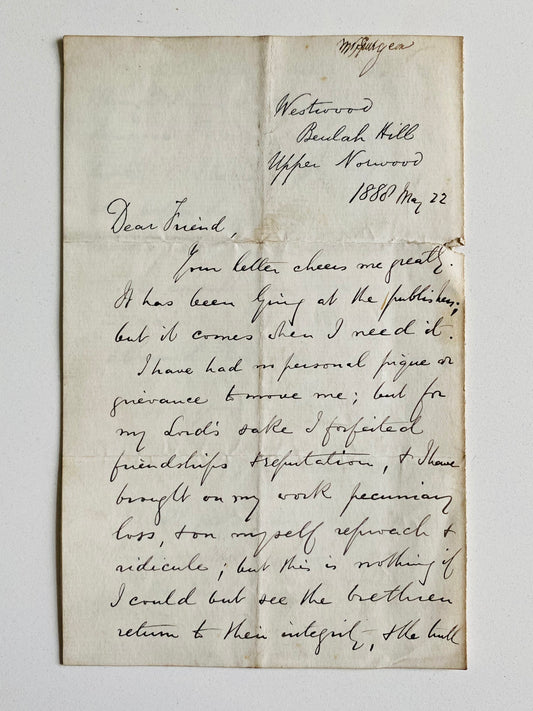 Mr Spurgeon
Westwood
Beulah Hill
Upper Norwood
1888 May 22
Dear Friend,
Your letter cheers me greatly.
It has been lying at the publishers;
but it comes when I need it.
I have had no personal pique or
grievance to move me; but for
my Lord's sake I forfeited
friendships & reputation, & I have
brought on my work pecuniary
loss, & on myself reproach &
ridicule; but this is nothing if
I could but see the brethren
return to their integrity, & the truth